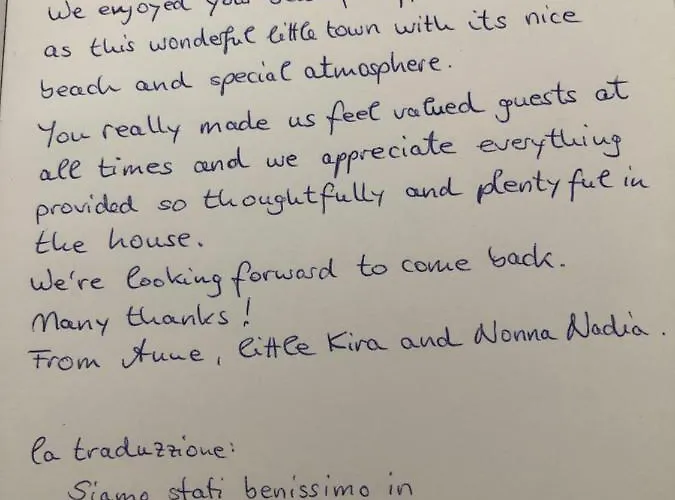 We enjoyed your
as this wonderful little town with its nice
beach and special atmosphere.
You really made us feel valued guests at
all times and we appreciate everything
provided so thoughtfully and plentyful in
the house.
We're looking forward to come back.
Many thanks!
From Anne, little Kira and Nonna Nadia.
la traduzzione:
Siamo stati benissimo in